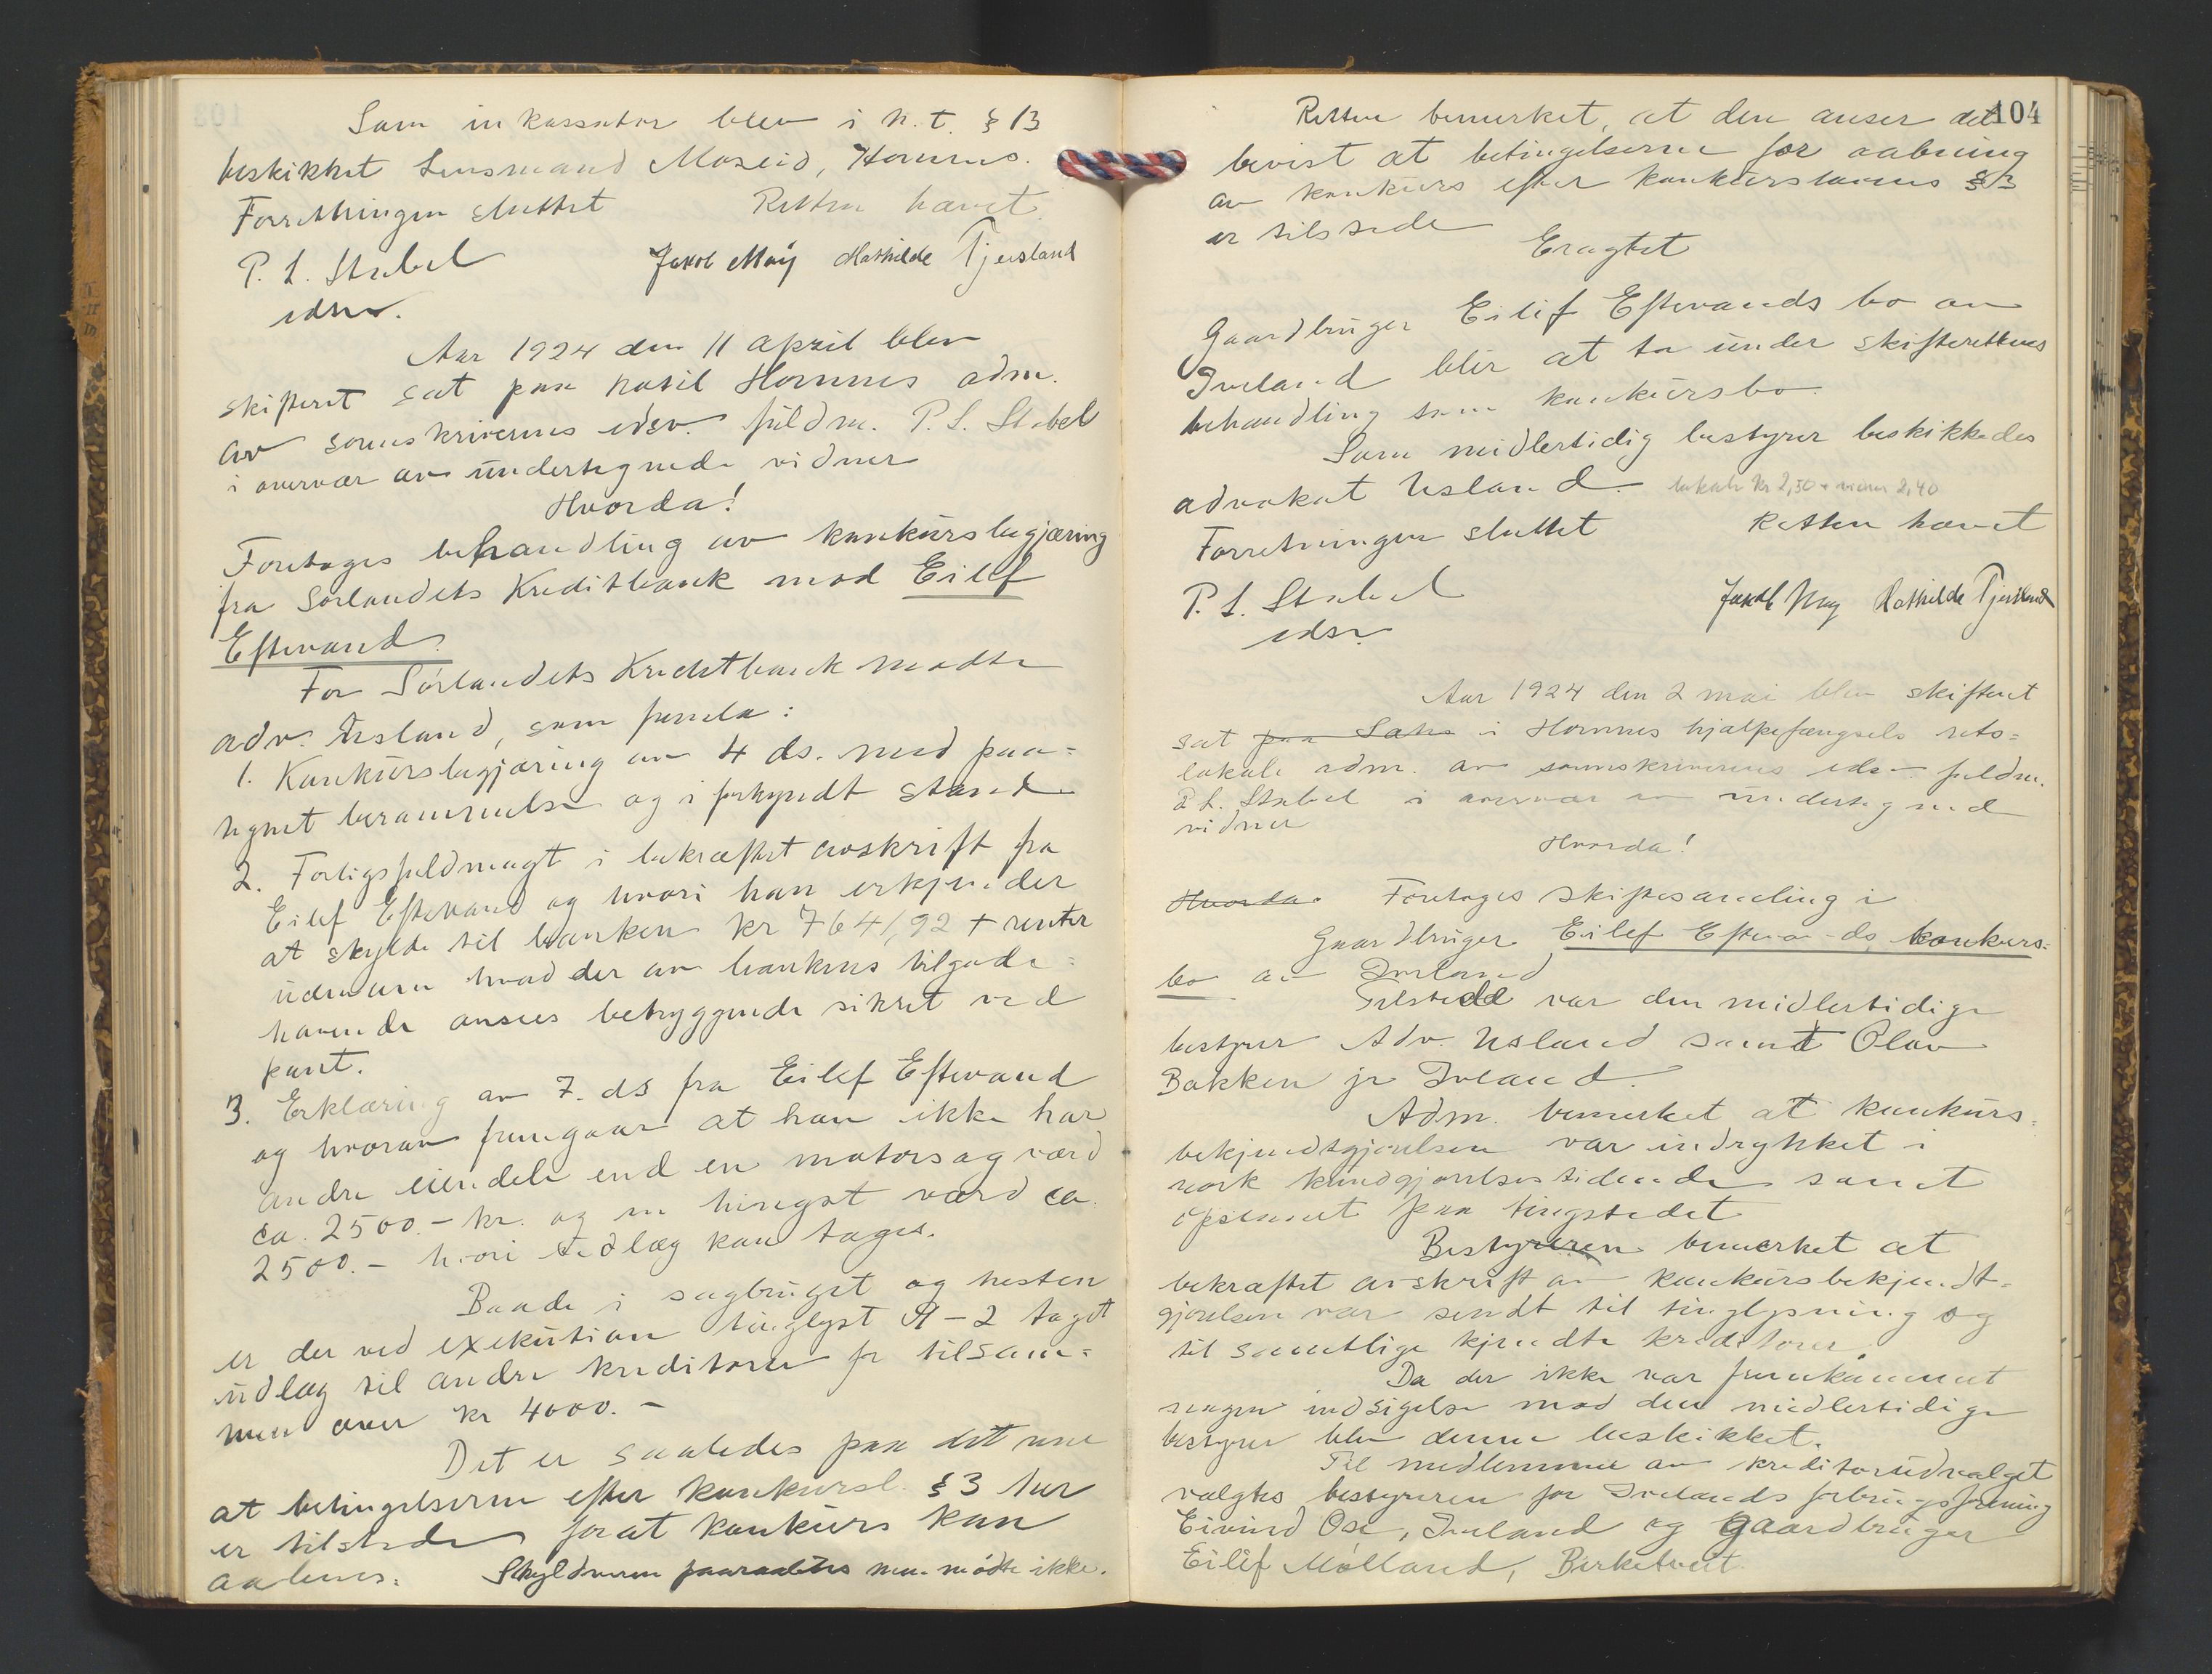 Som inkassator blev i h.t. § 13
beskikket Lensmand Moseid, Hornnes.
Forretningen sluttet Retten hævet.
P. L. Stabel
edsv.
Jakob Moy Mathilde Tjersland
Aar 1924 den 11 april blev
skifteret sat paa hotil Hornnes adm.
av sorenskriverens edsv. fuldm. P. L. Stabel
i overvær av undertegnede vidner
Hvorda!
Foretoges behandling av konkursbegjæring
fra Sørlandets Kreditbank mod Eilef
Eftevand.
For Sørlandets Kreditbank mødte
adv. Usland, som fremla:
1. Konkursbegjæring av 4 ds. med paa=
tegnet berammelse og i forkyndt stand
2. Forligsfuldmagt i bekræftet avskrift fra
Eilef Eftevand og hvori han erkjender
at skylde til banken kr 7641,92 + renter
udenom hvad der av bankens tilgode=
havende ansees betryggende sikret ved
pant.
3. Erklæring av 7. ds fra Eilef Eftevand
og hvorav fremgaar at han ikke har
andre eiendele end en motorsag værd
ca. 2500.- kr. og en hingst værd ca.
2500.- hvori utlæg kan tages.
Baade i sagbruget og hesten
er der ved exekution tinglyst 9-2 taget
utlæg til andre kreditorer for tilsam=
men over kr 4000.-
Det er saaledes paa det rene
at betingelserne efter konkursl. § 3 her
er tilstede forat konkurs kan
aabnes. Skyldneren paaraabtes men mødte ikke.
104
Retten bemerket, at den anser det
bevist at betingelserne for aabning
av konkurs efter konkurslovens § 3
er tilstede
Eragtet
Gaardbruger Eilif Eftevands bo av
Iveland blir at ta under skifterettens
behandling som konkursbo.
Som midlertidig bestyrer beskikkedes
advokat Usland. lokale kr 2,50 + vidner 2,40
Forretningen sluttet Retten hævet
P. L. Stabel
edsv.
Jakob Moy Mathilde Tjersland
Aar 1924 den 2 mai blev skifteret
sat paa i Hornnes hjælpefængsels rets=
lokale adm. av sorenskriverens edsv. fuldm.
P. L. Stabel i overvær av undertegned
vidner
Hvorda!
Hvorda. Foretoges skiftesamling i
Gaardbruger Eilef Eftevands konkurs=
bo av Iveland
Tilstede var den midlertidige
bestyrer Adv. Usland samt Olav
Bakken jr Iveland.
Adm. bemerket at konkurs=
bekjendtgjørelsen var indrykket i
norsk kundgjørelsestidende samt
opslaaet paa tingstedet
Bestyreren bemerket at
bekræftet avskrift av konkursbekjendt=
gjørelsen var sendt til tinglysning og
til samtlige kjendte kreditorer.
Da der ikke var fremkommet
nogen indsigelse mod den midlertidige
bestyrer blev denne beskikket.
Til medlemmer av kreditorudvalget
valgtes bestyreren for Ivelands forbrugsforening
Eivind Ose, Iveland og gaardbruger
Eilef Mølland, Birketveit